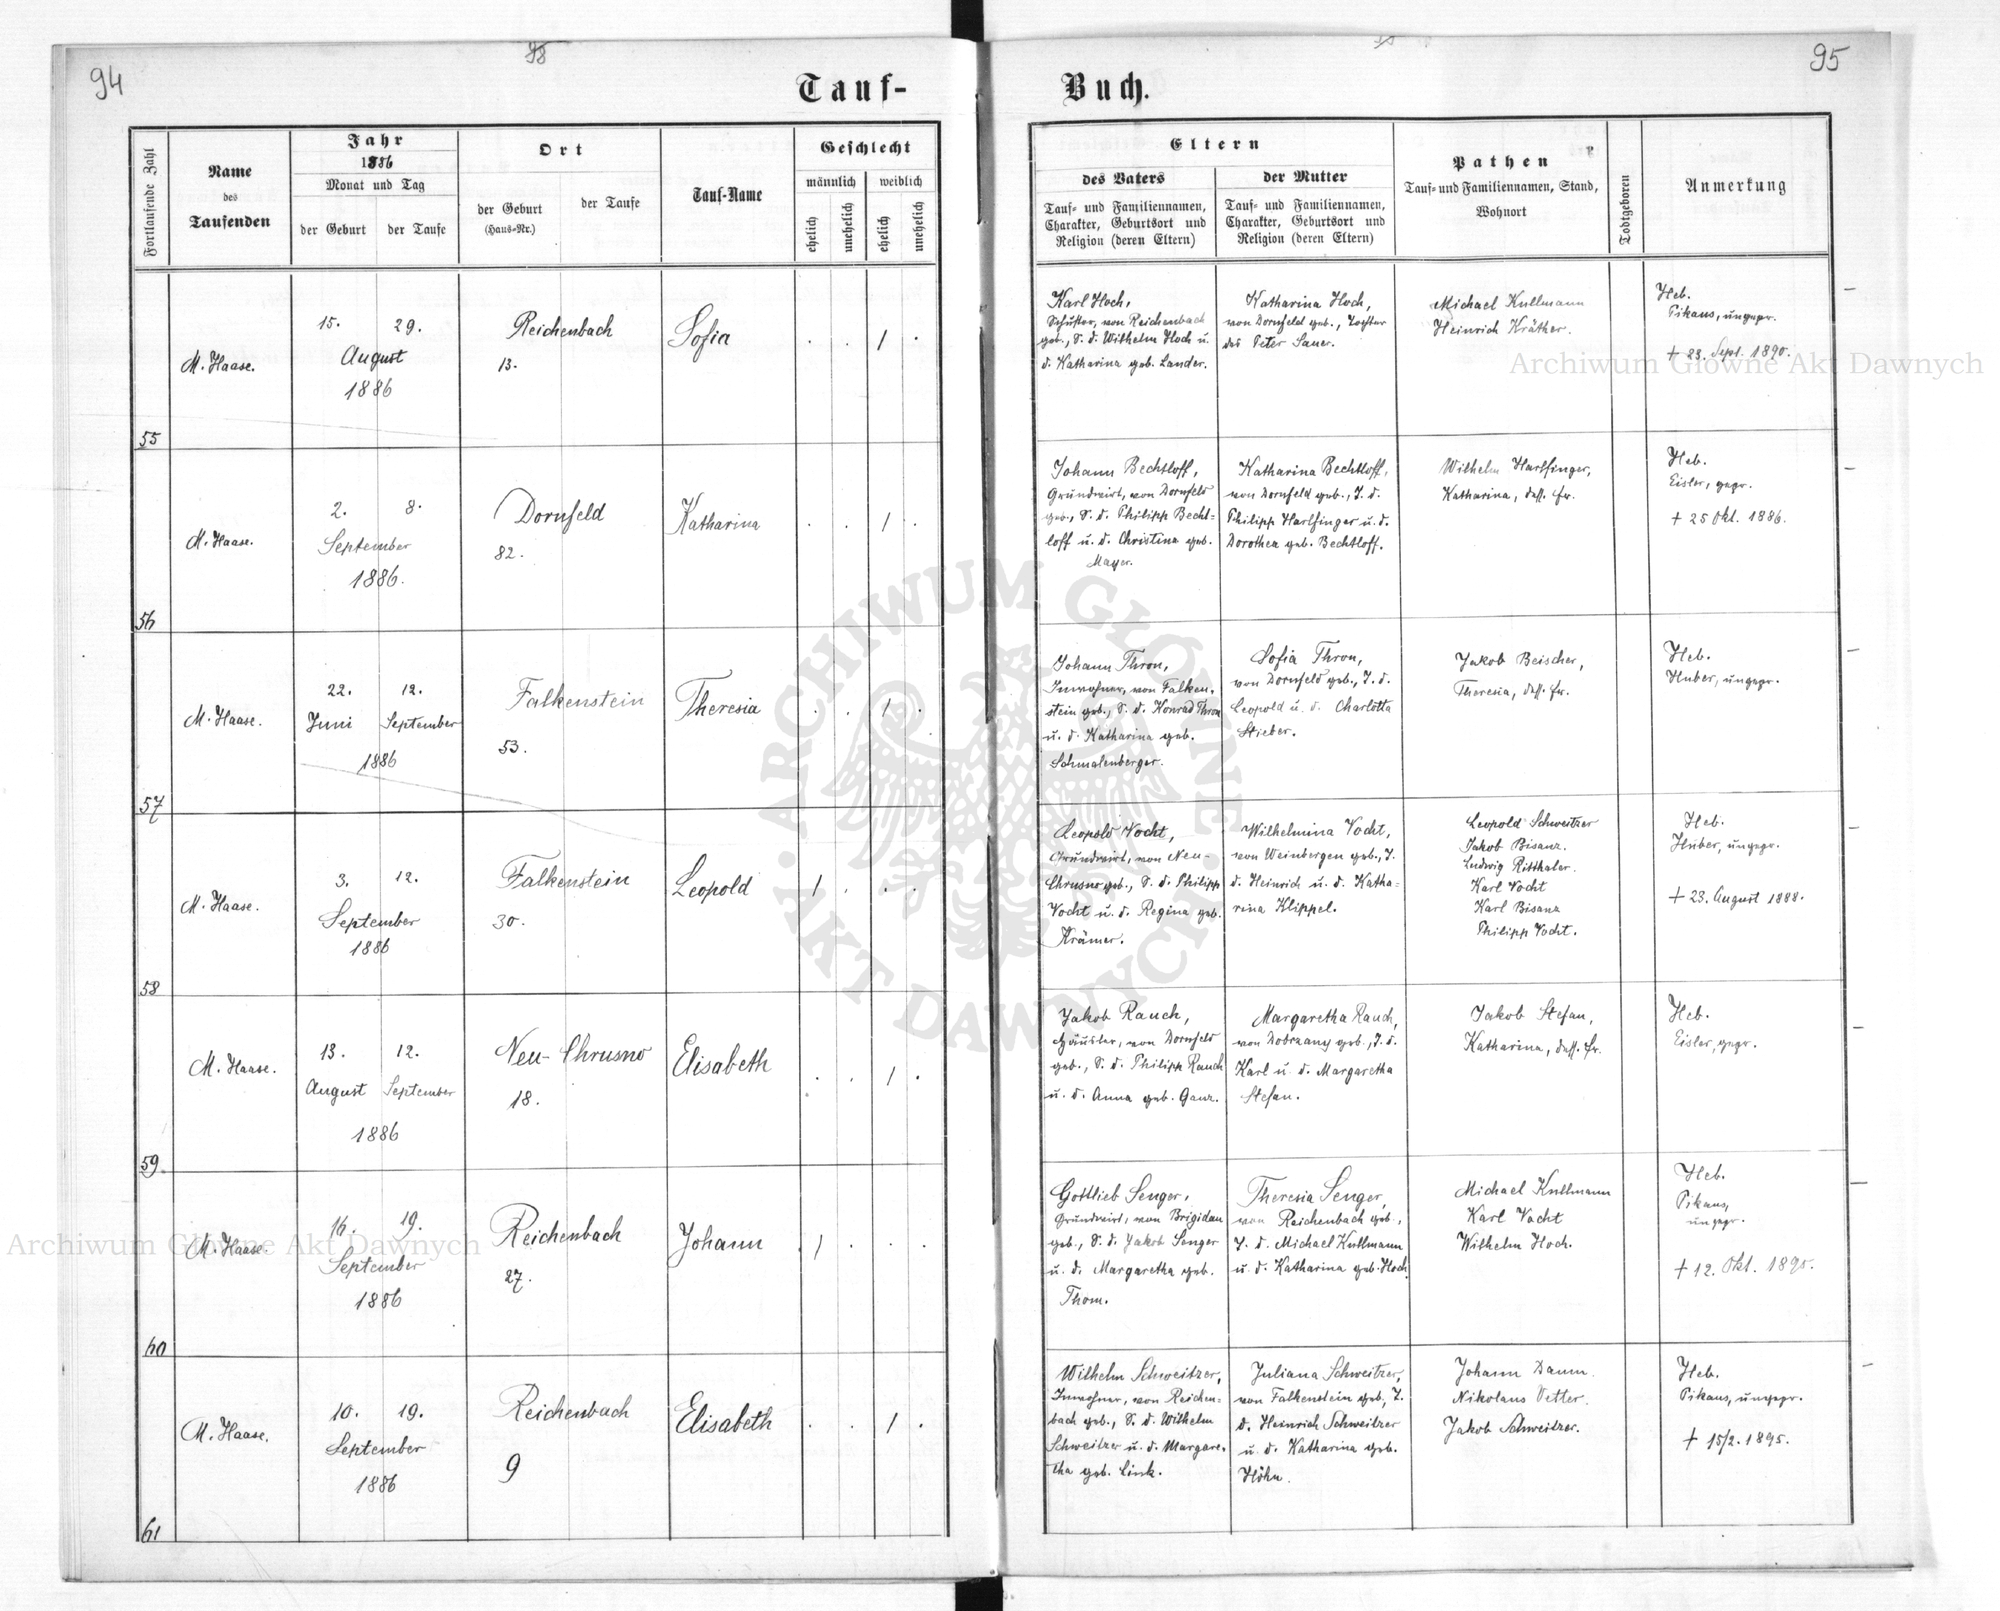 94
95
Tauf-
Buch.
Fortlaufende Zahl
Name
des
Taufenden
Jahr
1886
Monat und Tag
der Geburt
der Taufe
Ort
der Geburt
(Haus-Nr.)
der Taufe
Tauf-Name
Geschlecht
männlich
weiblich
ehelich
unehelich
ehelich
unehelich
Eltern
des Vaters
Tauf- und Familiennamen,
Charakter, Geburtsort und
Religion (deren Eltern)
der Mutter
Tauf- und Familiennamen,
Charakter, Geburtsort und
Religion (deren Eltern)
Pathen
Tauf- und Familiennamen, Stand,
Wohnort
Todtgeboren
Anmerkung
55
M. Haase.
15. 29.
August
1886
Reichenbach
13.
Sofia
. . 1 .
Karl Hoch,
Schuster, von Reichenbach
geb., S. d. Wilhelm Hoch u.
d. Katharina geb. Lander.
Katharina Hoch,
von Dornfeld geb., Tochter
des Peter Sauer.
Michael Kullmann
Heinrich Kräther.
Heb.
Pikaus, ungepr.
+ 23. Sept. 1890.
56
M. Haase.
2. 8.
September
1886.
Dornfeld
82.
Katharina
. . 1 .
Johann Bechtloff,
Grundwirt, von Dornfeld
geb., S. d. Philipp Becht-
loff u. d. Christina geb.
Mayer.
Katharina Bechtloff,
von Dornfeld geb., T. d.
Philipp Harlfinger u. d.
Dorothea geb. Bechtloff.
Wilhelm Harlfinger,
Katharina, dess. Fr.
Heb.
Eisler, gepr.
+ 25 Okt. 1886.
57
M. Haase.
22. 12.
Juni September
1886
Falkenstein
53.
Theresia
. . 1 .
Johann Thron,
Inwohner, von Falken-
stein geb., S. d. Konrad Thron
u. d. Katharina geb.
Schmalenberger.
Sofia Thron,
von Dornfeld geb., T. d.
Leopold u. d. Charlotta
Stieber.
Jakob Beischer,
Theresia, dess. Fr.
Heb.
Huber, ungepr.
58
M. Haase.
3. 12.
September
1886
Falkenstein
30.
Leopold
1 . . .
Leopold Vocht,
Grundwirt, von Neu-
Chrusno geb., S. d. Philipp
Vocht u. d. Regina geb.
Krämer.
Wilhelmina Vocht,
von Weinbergen geb., T.
d. Heinrich u. d. Katha-
rina Klippel.
Leopold Schweitzer
Jakob Bisanz.
Ludwig Ritthaler.
Karl Vocht
Karl Bisanz
Philipp Vocht.
Heb.
Huber, ungepr.
+ 23. August 1888.
59
M. Haase.
13. 12.
August September
1886
Neu-Chrusno
18.
Elisabeth
. . 1 .
Jakob Rauch,
Häusler, von Dornfeld
geb., S. d. Philipp Rauch
u. d. Anna geb. Ganz.
Margaretha Rauch,
von Dobrzany geb., T. d.
Karl u. d. Margaretha
Stefan.
Jakob Stefan,
Katharina, dess. Fr.
Heb.
Eisler, gepr.
60
M. Haase.
16. 19.
September
1886
Reichenbach
27.
Johann
1 . . .
Gottlieb Senger,
Grundwirt, von Brigidau
geb., S. d. Jakob Senger
u. d. Margaretha geb.
Thom.
Theresia Senger,
von Reichenbach geb.,
T. d. Michael Kullmann
u. d. Katharina geb. Hoch.
Michael Kullmann
Karl Vocht
Wilhelm Hoch.
Heb.
Pikaus,
ungepr.
+ 12. Okt. 1890.
61
M. Haase.
10. 19.
September
1886
Reichenbach
9
Elisabeth
. . 1 .
Wilhelm Schweitzer,
Inwohner, von Reichen-
bach geb., S. d. Wilhelm
Schweitzer u. d. Margare-
tha geb. Link.
Juliana Schweitzer,
von Falkenstein geb., T.
d. Heinrich Schweitzer
u. d. Katharina geb.
Höhn.
Johann Daum
Nikolaus Vetter.
Jakob Schweitzer.
Heb.
Pikaus, ungepr.
+ 15/2. 1895.
Archiwum Główne Akt Dawnych
Archiwum Główne Akt Dawnych
ARCHIWUM GŁÓWNE
AKT DAWNYCH